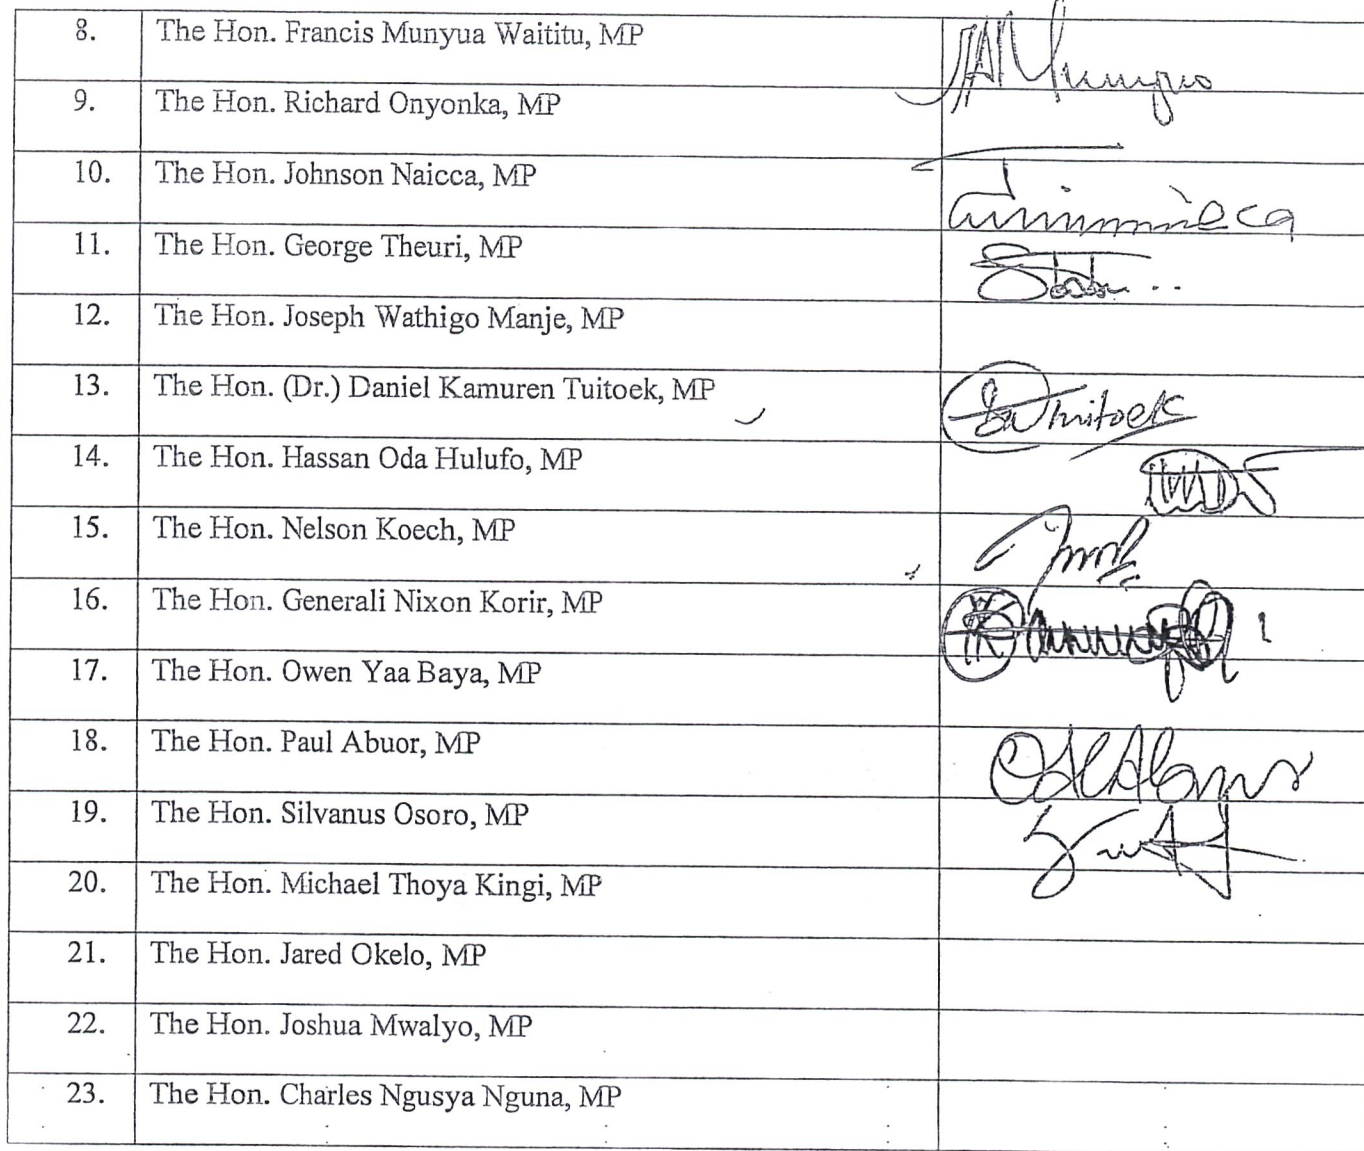 8. The Hon. Francis Munyua Waititu, MP
9. The Hon. Richard Onyonka, MP
10. The Hon. Johnson Naicca, MP
11. The Hon. George Theuri, MP
12. The Hon. Joseph Wathigo Manje, MP
13. The Hon. (Dr.) Daniel Kamuren Tuitoek, MP Tuitoek
14. The Hon. Hassan Oda Hulufo, MP
15. The Hon. Nelson Koech, MP
16. The Hon. Generali Nixon Korir, MP
17. The Hon. Owen Yaa Baya, MP
18. The Hon. Paul Abuor, MP
19. The Hon. Silvanus Osoro, MP
20. The Hon. Michael Thoya Kingi, MP
21. The Hon. Jared Okelo, MP
22. The Hon. Joshua Mwalyo, MP
23. The Hon. Charles Ngusya Nguna, MP